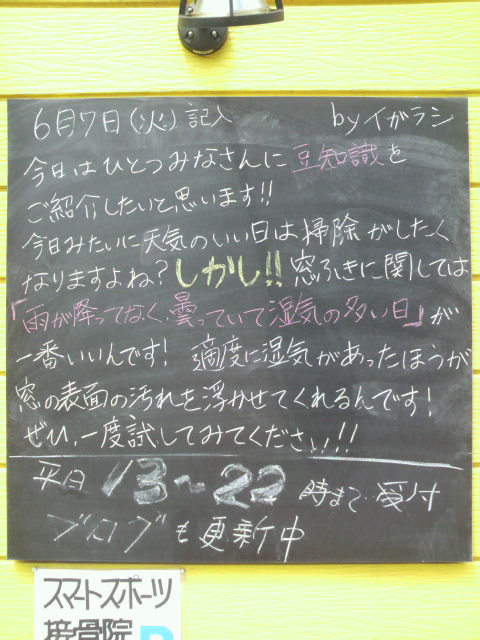 6月7日(火)記入 byイガラシ
今日はひとつみなさんに豆知識を
ご紹介したいと思います!!
今日みたいに天気のいい日は掃除がしたく
なりますよね?しかし!!窓ふきに関しては
「雨が降ってなく、曇っていて湿気の多い日」が
一番いいんです!適度に湿気があったほうが
窓の表面の汚れを浮かせてくれるんです!
ぜひ、一度試してみてください!!
平日13〜22時まで受付
ブログも更新中
スマートスポーツ
接骨院 P